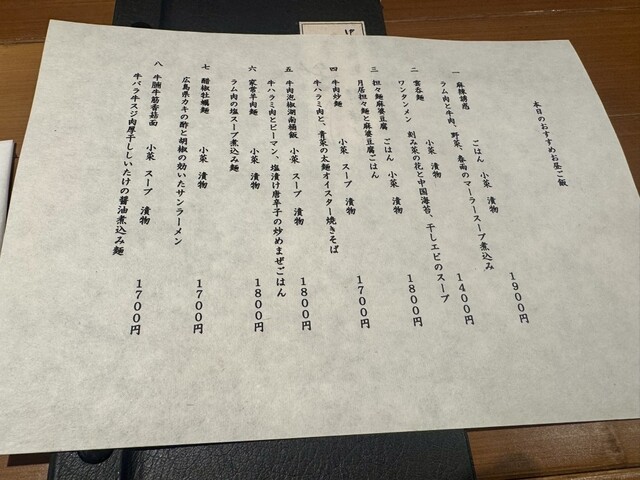 本日のおすすめお昼ご飯
一 麻辣誘惑 ごはん 小菜 漬物 1900円
ラム肉と牛肉、野菜、春雨のマーラースープ煮込み
二 雲呑麺 小菜 漬物 1400円
ワンタンメン 刻み菜の花と中国海苔、干しエビのスープ
三 担々麺麻婆豆腐 ごはん 小菜 漬物 1800円
月居担々麺と麻婆豆腐ごはん
四 牛肉炒麺 小菜 スープ 漬物 1700円
牛ハラミ肉と、青菜の太麺オイスター焼きそば
五 牛肉泡椒湖南桶飯 小菜 スープ 漬物 1800円
牛ハラミ肉とピーマン、塩漬け唐辛子の炒めまぜごはん
六 家常羊肉麺 小菜 漬物 1800円
ラム肉の塩スープ煮込み麺
七 醋椒牡蠣麺 小菜 漬物 1700円
広島県カキの酢と胡椒の効いたサンラーメン
八 牛腩牛筋香菇面 小菜 スープ 漬物 1700円
牛バラ牛スジ肉厚干ししいたけの醤油煮込み麺